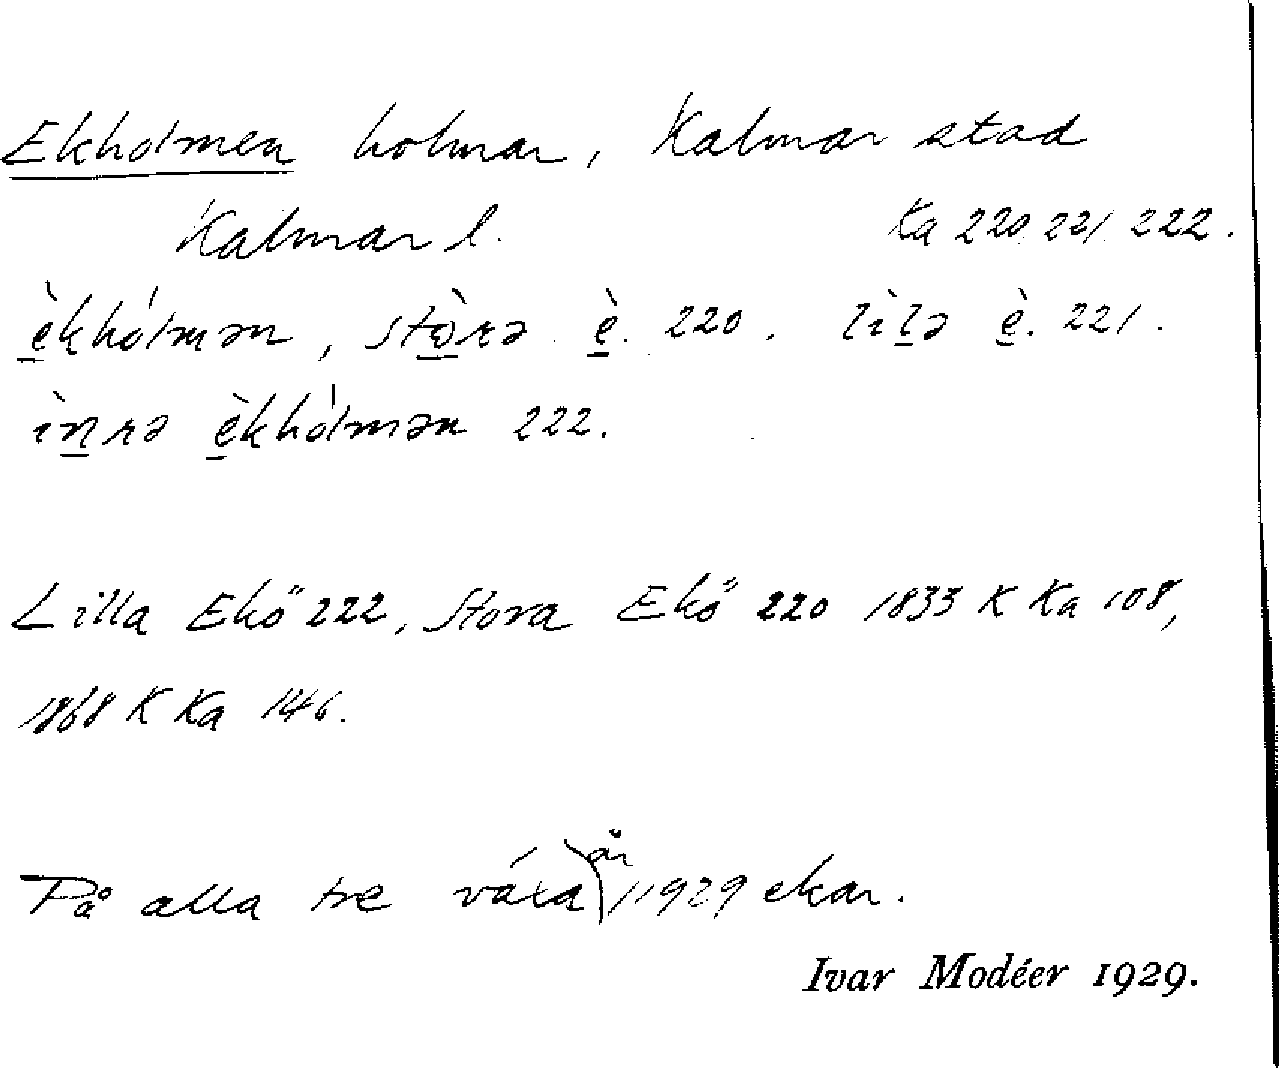 Ekholmen holmar, Kalmar stad
Kalmar l. Ka 220 221 222.
èkhólmən, stòrə è. 220. lìlə è. 221.
ìnrə èkhólmən 222.
Lilla Ekö 222, Stora Ekö 220 1833 K Ka 108,
1868 K Ka 146.
På alla tre växa år 1929 ekar.
Ivar Modéer 1929.